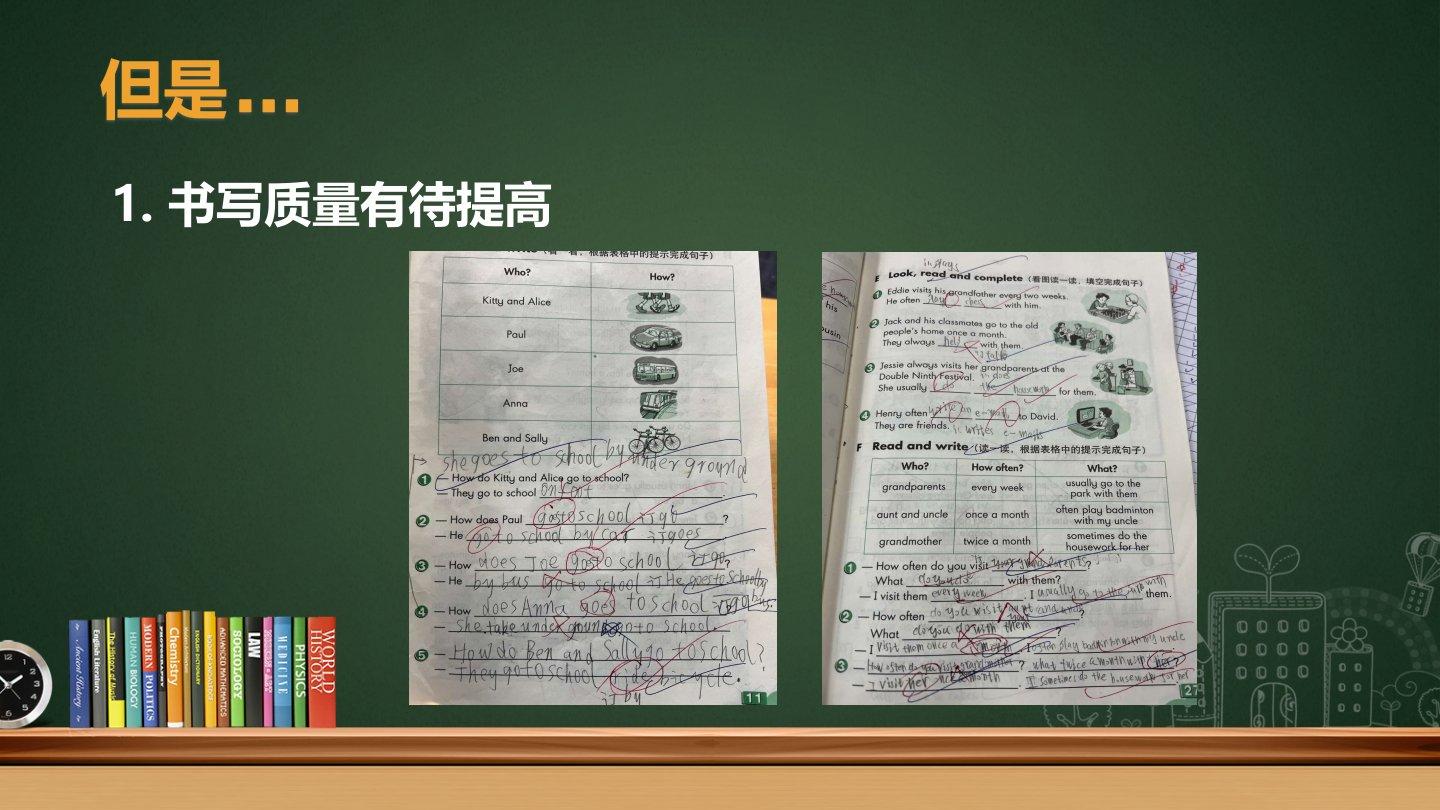 但是...
1. 书写质量有待提高
（看一看，根据表格中的提示完成句子）
Who? How?
Kitty and Alice
Paul
Joe
Anna
Ben and Sally
she goes to school by underground
1 — How do Kitty and Alice go to school?
— They go to school on foot
2 — How does Paul goes to school 订 go ?
— He go to school by car 订 goes
3 — How does Joe goes to school 订 go ?
— He by bus go to school 订 He goes to school by bus.
4 — How does Anna goes to school 订 go
— She take underground to school
5 — How do Ben and Sally go to school?
— They go to school ride bicycle.
订 by
11
E Look, read and complete（看图读一读，填空完成句子）
1 Eddie visits his grandfather every two weeks.
He often play chess with him.
2 Jack and his classmates go to the old
people's home once a month.
They always help with them.
3 Jessie always visits her grandparents at the
Double Ninth Festival.
She usually do the housework for them.
4 Henry often write an e-mail to David.
They are friends. 订 writes e-mails
F Read and write（读一读，根据表格中的提示完成句子）
Who? How often? What?
grandparents every week usually go to the
park with them
aunt and uncle once a month often play badminton
with my uncle
grandmother twice a month sometimes do the
housework for her
1 — How often do you visit your grandparents ?
What do you do with them?
— I visit them every week . I usually go to the park with them.
2 — How often do you visit aunt and uncle
What do you do with them ?
— I visit them once a month . I often play badminton with my uncle
3 — How often do you visit grandmother ? what twice a month with her?
— I visit her twice a month . I sometimes do the housework for her
27
Ancient History
English Literature
The History of Music
HUMAN BIOLOGY
MODERN POLITICS
PHOTOGRAPHY
Chemistry
ADVANCED MATHEMATICS
SOCIOLOGY
LAW
MEDICINE
PHYSICS
WORLD HISTORY